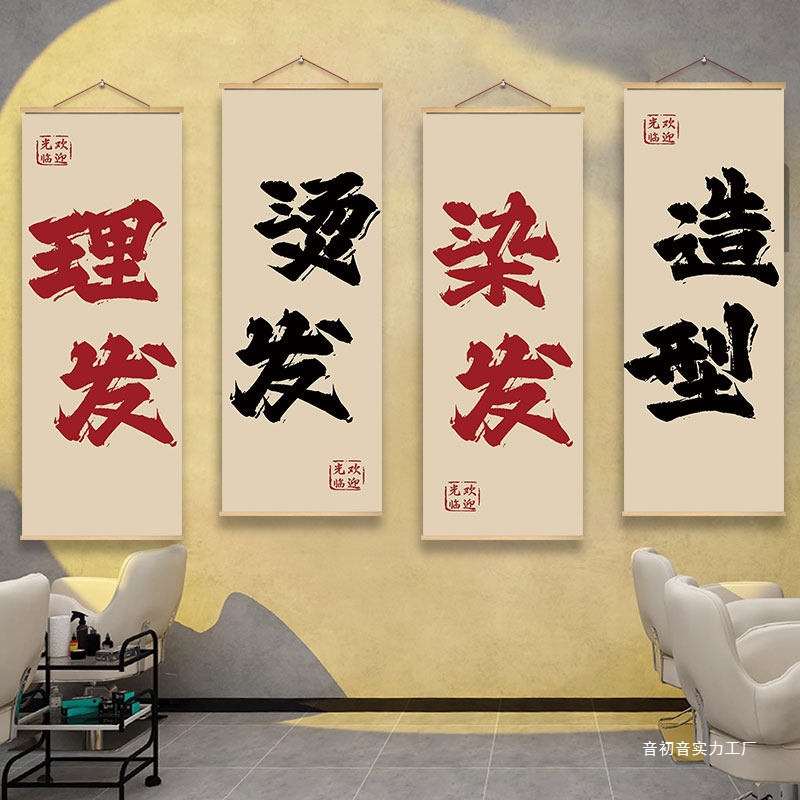 欢迎光临
理发
烫发
欢迎光临
染发
欢迎光临
欢迎光临
造型
音初音实力工厂